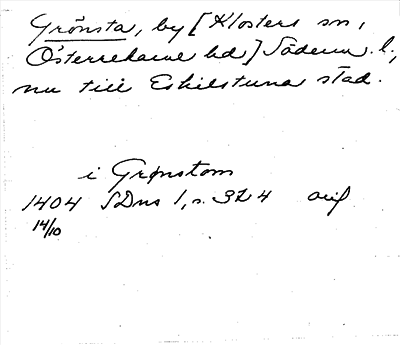 Grönsta, by [Klosters sn,
Österrekarne hd] Söderm. l.,
nu till Eskilstuna stad.
i Grønstom
1404 SDns 1, s. 324 orig
14/10